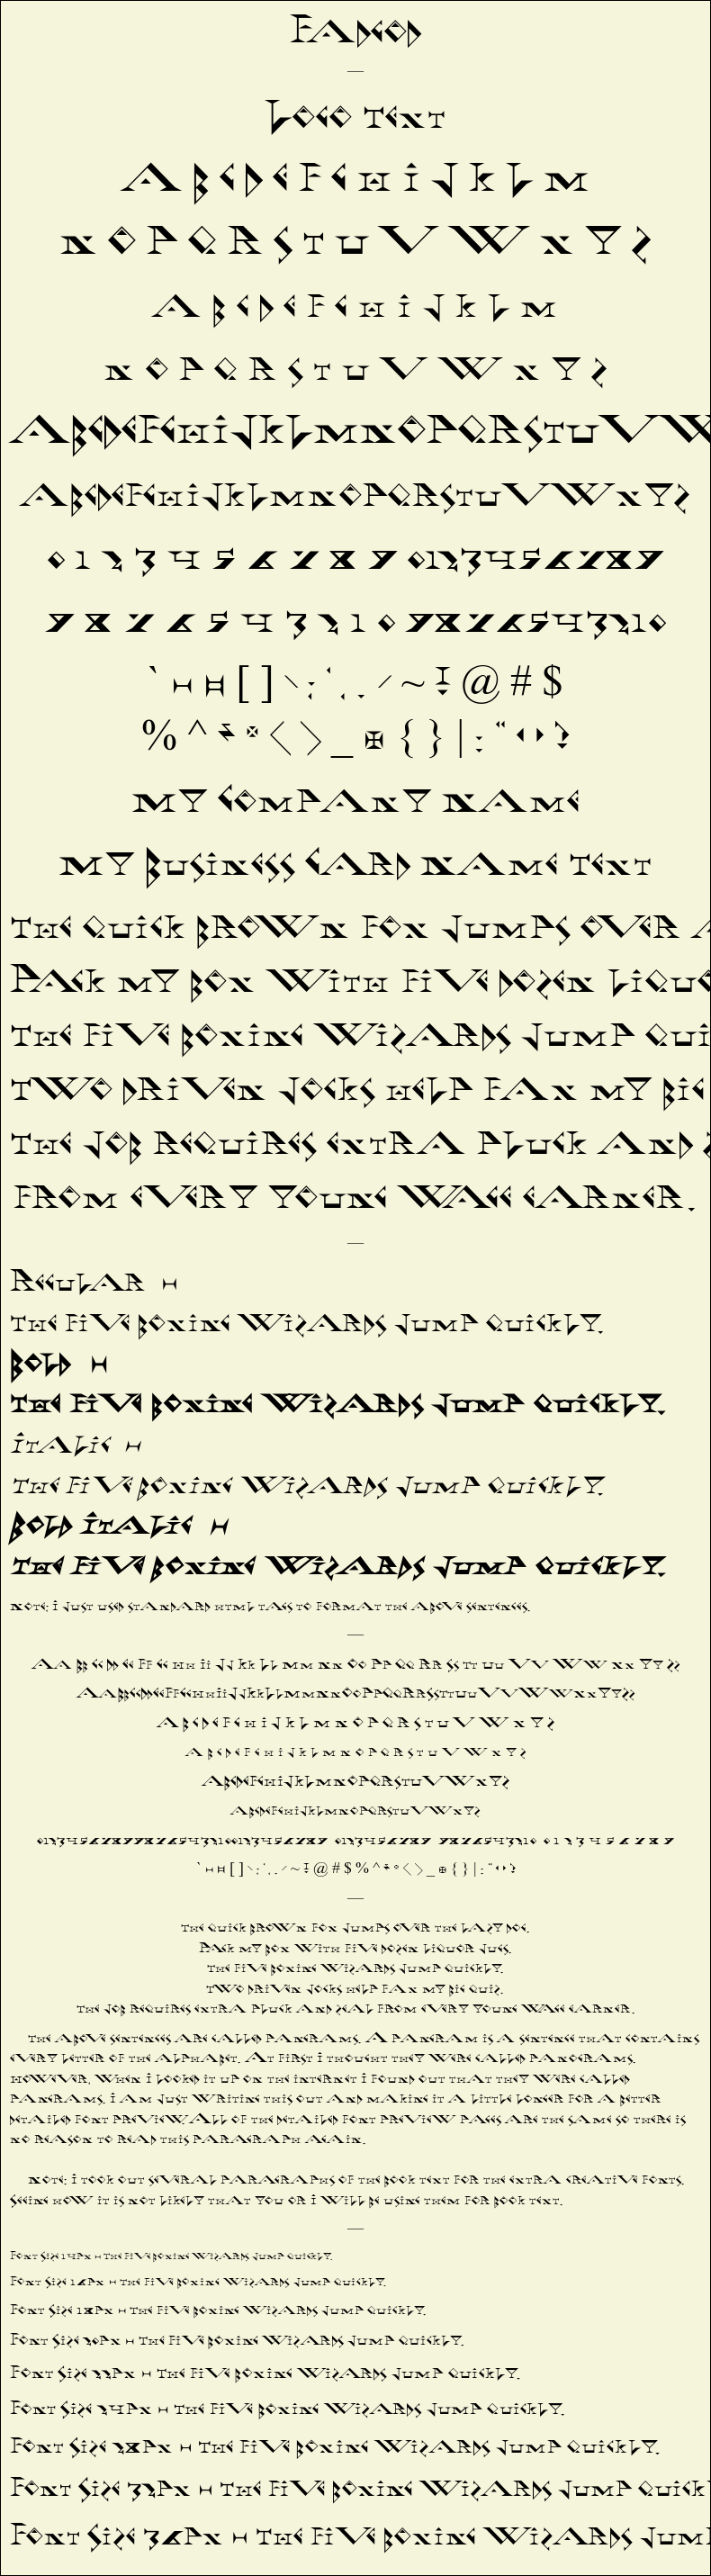 Fadgod
—
Logo Text
A B C D E F G H I J K L M
N O P Q R S T U V W X Y Z
a b c d e f g h i j k l m
n o p q r s t u v w x y z
ABCDEFGHIJKLMNOPQRSTUVW
abcdefghijklmnopqrstuvwxyz
0 1 2 3 4 5 6 7 8 9 0123456789
9 8 7 6 5 4 3 2 1 0 9876543210
` - = [ ] \ ; ' , . / ~ ! @ # $
% ^ & * ( ) _ + { } | : " < > ?
My Company Name
My Business Card Name Text
The quick brown fox jumps over
Pack my box with five dozen liquo
The five boxing wizards jump qui
Two driven jocks help fax my big
The job requires extra pluck and
from every young wage earner.
—
Regular -
The five boxing wizards jump quickly.
Bold -
The five boxing wizards jump quickly.
Italic -
The five boxing wizards jump quickly.
Bold Italic -
The five boxing wizards jump quickly.
Note: I just used standard html tags to format the above sentences.
—
Aa Bb Cc Dd Ee Ff Gg Hh Ii Jj Kk Ll Mm Nn Oo Pp Qq Rr Ss Tt Uu Vv Ww Xx Yy Zz
AaBbCcDdEeFfGgHhIiJjKkLlMmNnOoPpQqRrSsTtUuVvWwXxYyZz
A B C D E F G H I J K L M N O P Q R S T U V W X Y Z
a b c d e f g h i j k l m n o p q r s t u v w x y z
ABCDEFGHIJKLMNOPQRSTUVWXYZ
abcdefghijklmnopqrstuvwxyz
012345678998765432100123456789 0123456789 9876543210 0 1 2 3 4 5 6 7 8 9
` - = [ ] \ ; ' , . / ~ ! @ # $ % ^ & * ( ) _ + { } | : " < > ?
—
The quick brown fox jumps over the lazy dog.
Pack my box with five dozen liquor jugs.
The five boxing wizards jump quickly.
Two driven jocks help fax my big quiz.
The job requires extra pluck and zeal from every young wage earner.
The above sentences are called pangrams. A pangram is a sentence that contains
every letter of the alphabet. At first I thought they were called panograms.
However, when I looked it up on the internet I found out that they were called
pangrams. I am just writing this out and making it a little longer for a better
detailed font preview. All of the detailed font preview pages are the same so there is
no reason to read this paragraph again.
Note: I took out several paragraphs of the book text for the extra creative fonts.
Seeing how it is not likely that you or I will be using them for book text.
—
Font Size 14px - The five boxing wizards jump quickly.
Font Size 16px - The five boxing wizards jump quickly.
Font Size 18px - The five boxing wizards jump quickly.
Font Size 20px - The five boxing wizards jump quickly.
Font Size 22px - The five boxing wizards jump quickly.
Font Size 24px - The five boxing wizards jump quickly.
Font Size 28px - The five boxing wizards jump quickly.
Font Size 32px - The five boxing wizards jump quick
Font Size 36px - The five boxing wizards jum